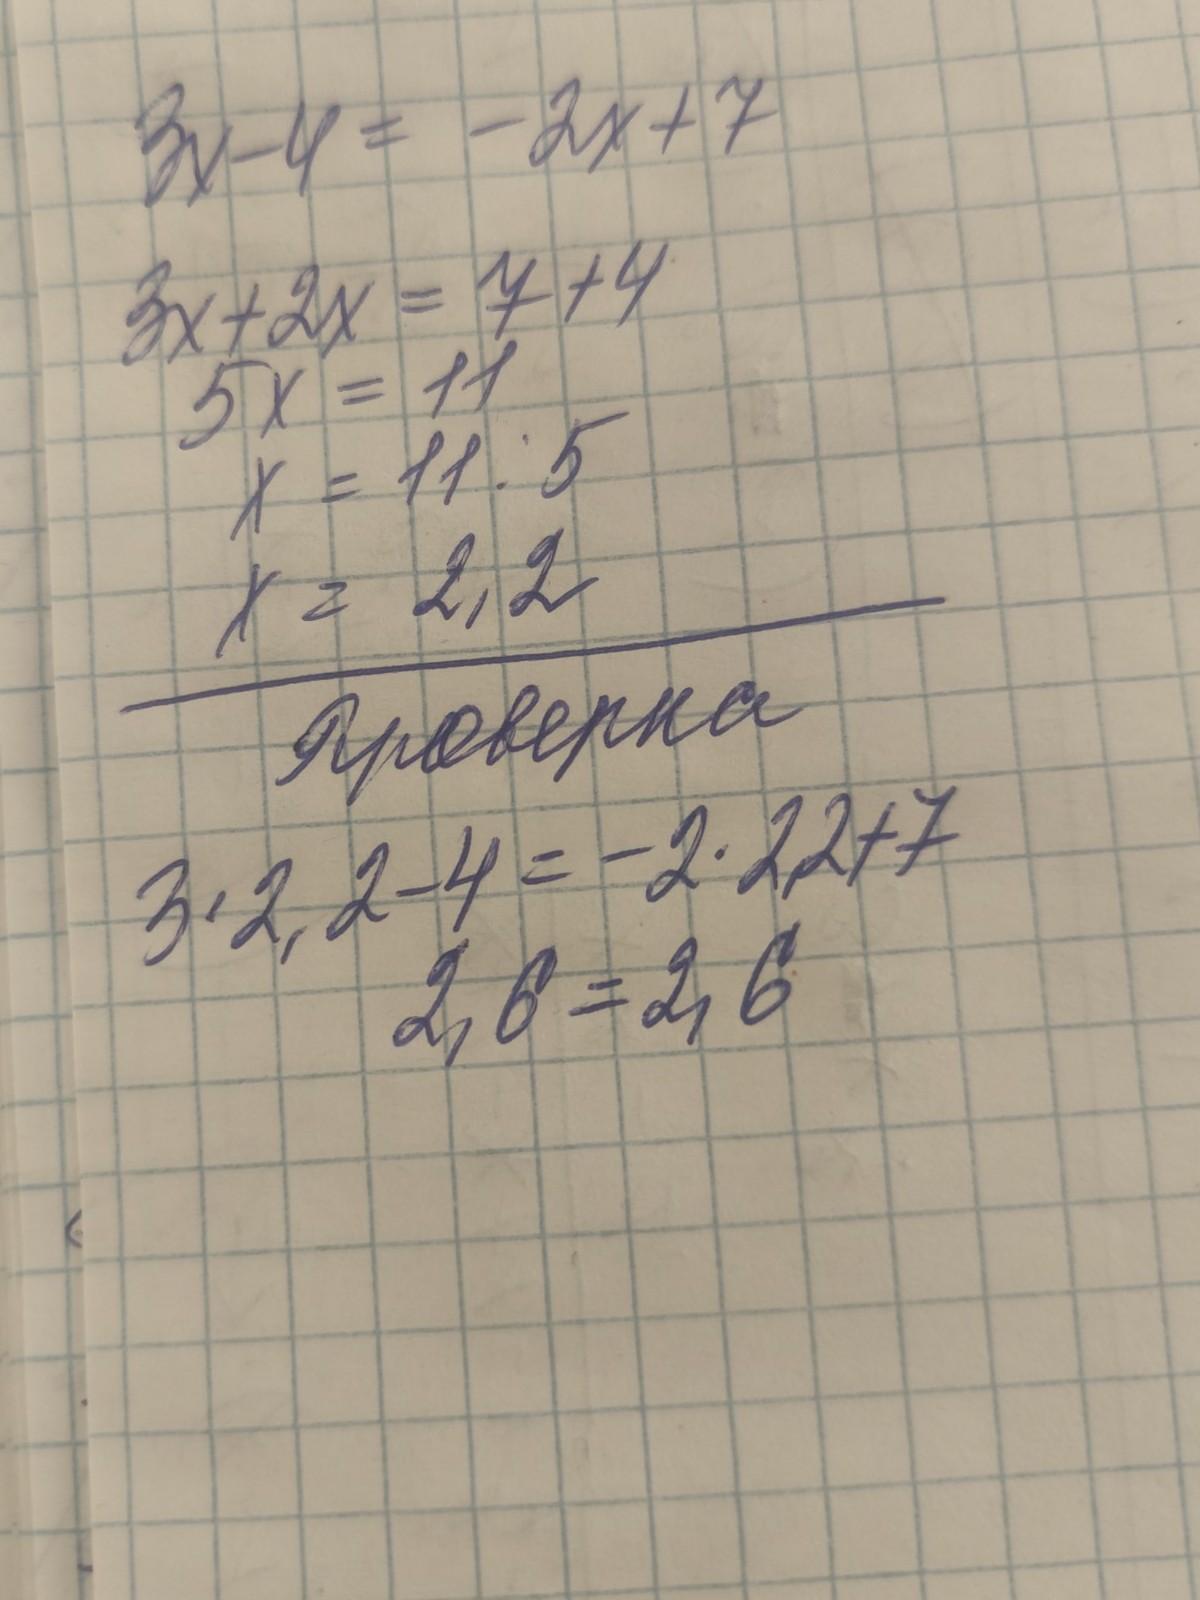 3x-4= -2x+7
3x+2x=7+4
5x=11
x=11:5
x=2,2
Проверка
3·2,2-4=-2·2,2+7
2,6=2,6